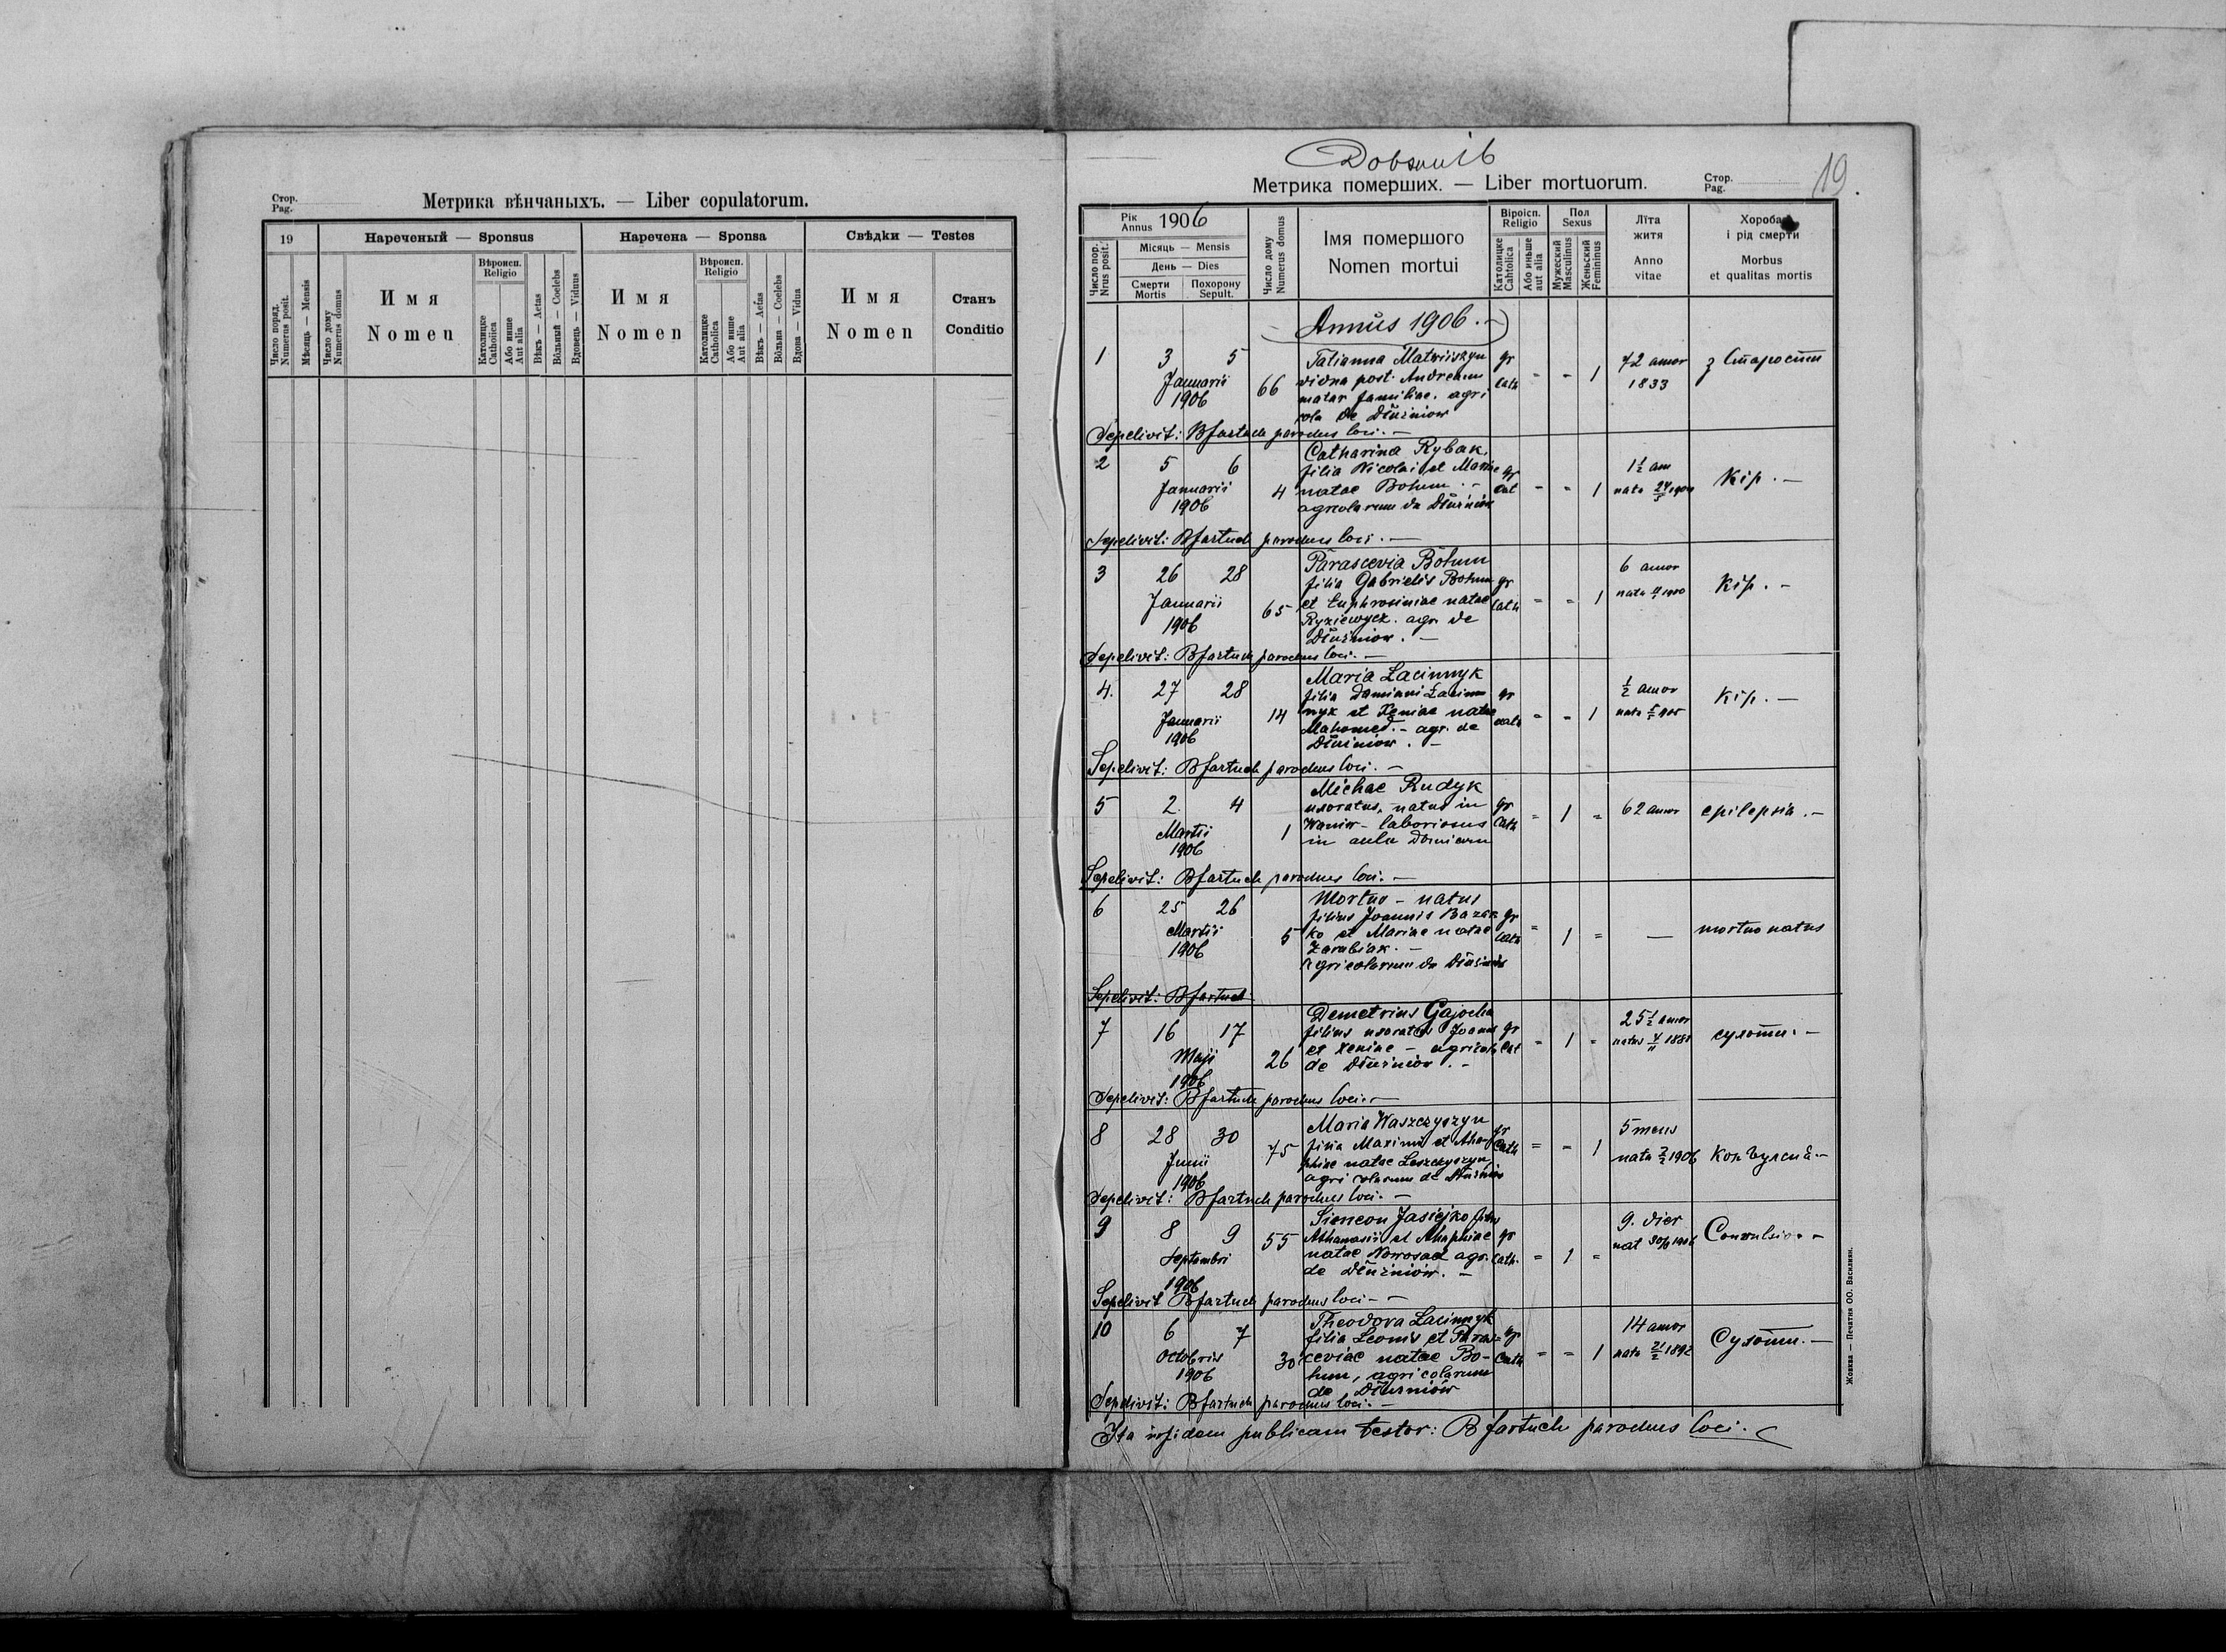 Стор.
Pag.
Метрика вѣнчаныхъ. — Liber copulatorum.
19
Нареченый — Sponsus
Наречена — Sponsa
Свѣдки — Testes
Число поряд.
Numerus posit.
Мѣсяць — Mensis
Число дому
Numerus domus
Имя
Nomen
Вѣроисп.
Religio
Католицке
Catholica
Або инше
Aut alia
Вѣкъ — Aetas
Вôльный — Coelebs
Вдовець — Viduus
Имя
Nomen
Вѣроисп.
Religio
Католицке
Catholica
Або инше
Aut alia
Вѣкъ — Aetas
Вôльна — Coelebs
Вдова — Vidua
Имя
Nomen
Станъ
Conditio
Метрика померших. — Liber mortuorum.
Стор.
Pag.
19.
Рік
Annus 1906
Число пор.
Nrus posit.
Місяць — Mensis
День — Dies
Смерти
Mortis
Похорону
Sepult.
Число дому
Numerus domus
Імя помершого
Nomen mortui
Віроісп.
Religio
Католицке
Cahtolica
Або иньше
aut alia
Пол
Sexus
Мужеский
Masculinus
Женьский
Femininus
Лїта
житя
Anno
vitae
Хороба
і рід смерти
Morbus
et qualitas mortis
Annus 1906.
1 3 5 Januarii 1906 66
Tatianna Matwiiszyn
vidua post Andream
mater familiae. agri
cola de Dłużniow
gr cath - - 1
72 annor
1833
з Старости
Sepelivit: B fartuch parochus loci. —
2 5 6 Januarii 1906 4
Catharina Rybak,
filia Nicolai et Mariae
natae Bohun. -
agricolarum de Dłużniów
gr cat - - 1
1½ an
nata 24/5 1904
Kip. —
Sepelivit: B fartuch parochus loci. —
3 26 28 Januarii 1906 65
Parascevia Bohun
filia Gabrielis Bohun
et Euphrosiniae natae
agr de
Dłużniow. —
gr cath = = 1
6 annor
nata 1900
Kip. —
Sepelivit: B fartuch parochus loci. —
4. 27 28 Januarii 1906 14
Maria Lacinnyk
filia Damiani Lacin
nyk et Xeniae natae
Mahomed. - agr. de
Dłużniow. —
gr cath = - 1
½ annor
nata 1905
Kip. —
Sepelivit: B fartuch parochus loci. —
5 2 4 Martii 1906 1
Michae Rudyk
uxoratus, natus in
laboriosus
in aula
gr cath - 1 =
62 annor
epilepsia. —
Sepelivit: B fartuch parochus loci. —
6 25 26 Martii 1906 5
Mortuo - natus
filius Joannis Bazar
ko et Mariae natae
Zarubiak. —
agricolarum de Dłużniów
gr cath = 1 =
—
mortuo natus
Sepelivit: B fartuch
7 16 17 Maji 1906 26
Demetrius Gajocha
filius uxoratus Joannis
et Xeniae - agricola
de Dłużniów. -
gr cat = 1 =
25½ annor
natus 4/11 1881
сухоти. —
Sepelivit: B fartuch parochus loci. —
8 28 30 Junii 1906 75
Maria Waszczyszyn
filia Maximi et Aha-
phiae natae Leszczyszyn,
agricolarum de Dłużniów
gr cath = - 1
5 mens
nata 2/2 1906
Конвулсиї —
Sepelivit: B fartuch parochus loci. —
9 8 9 Septembri 1906 55
Simeon Jasiejko filius
Athanasii et Ahaphiae
natae Nowosad agr.
de Dłużniów. —
gr cath. = 1 =
9. dier
nat 30/8 1906
Convulsio. —
Sepelivit B fartuch parochus loci - —
10 6 7 Octobris 1906 30
Theodora Lacinnyk
filia Leonis et Paras=
ceviae natae Bo-
hun, agricolarum
de Dłużniów
gr Cath = = 1
14 annor
nata 21/2 1892
Сухоти. —
Sepelivit: B fartuch parochus loci. —
Ita in fidem publicam testor: B fartuch parochus loci.
Жовква — Печатня ОО. Василиян.